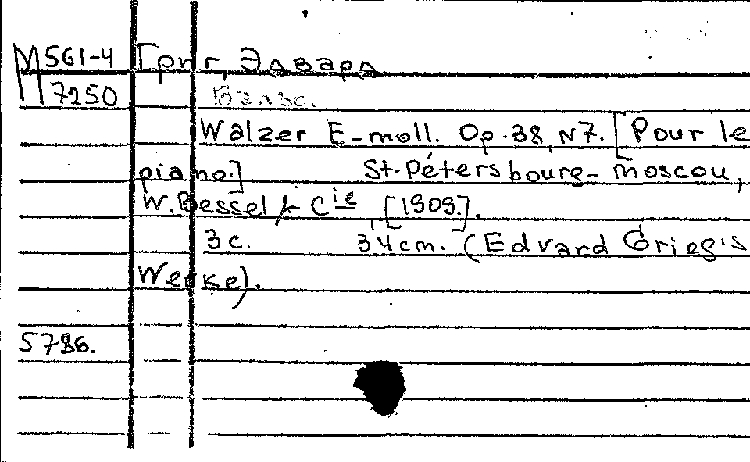 М 561-4 Григ, Эдвард
П 7250 Вальс.
Walzer E-moll. Op. 38, N7. [Pour le
piano.] St-Pétersbourg-Moscou,
W. Bessel & Cie [1909].
3 c. 34 cm. (Edvard Grieg's
Werke).
5786.